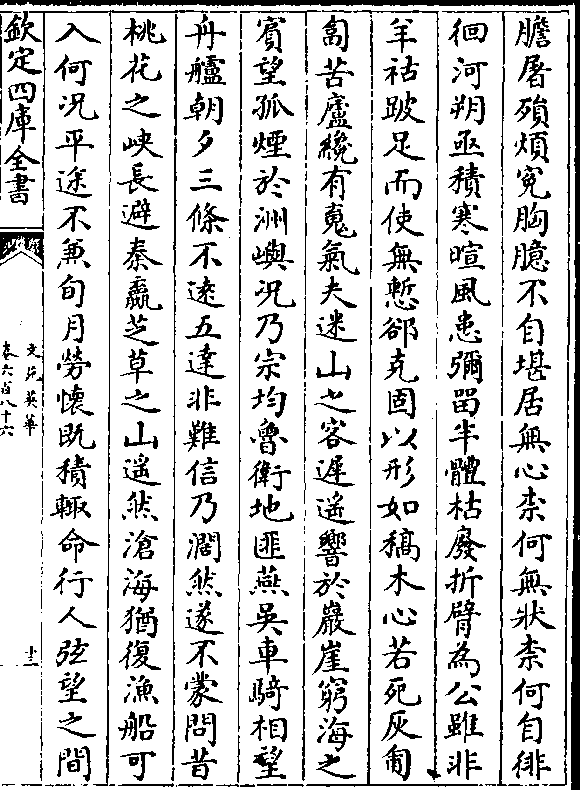 膽屠殞煩寃胸臆不自堪居無心柰何無狀柰何自徘
徊河朔亟積寒暄風患彌留半體枯廢折臂為公雖非
羊祜跛足而使無慙郤克固以形如槁木心若死灰匍
匐苦廬纔有䰟氣夫迷山之客遲遥響於巖崖窮海之
賓望孤煙於洲嶼況乃宗均魯衛地匪燕吳車騎相望
舟艫朝夕三條不逺五達非難信乃濶然遂不蒙問昔
桃花之峽長避秦嬴芝草之山遥然滄海猶復漁船可
入何况平途不兼旬月勞懷既積輙命行人弦望之間
欽定四庫全書
文苑英華
卷六百八十六